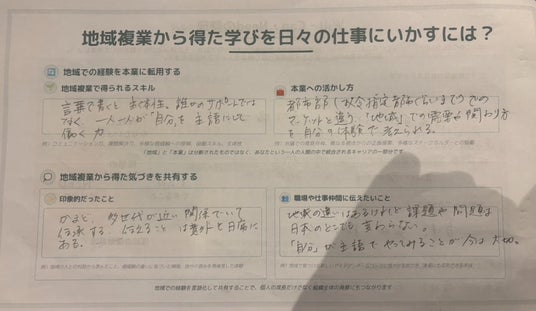 地域複業から得た学びを日々の仕事にいかすには？
地域での経験を本業に転用する
地域複業で得られるスキル
言葉で書くと主体性。誰かのサポートでは
なく、一人一人が「自分」を主語にして
働く力
本業への活かし方
都市部（政令指定都市くらいまで）での
マーケットと違う「地域」での需要と関わり方
を自分の体験で考えられる。
「地域」と「本業」は分断されたものではなく、あなたという一人の人間の中で統合されるキャリアの一部分です
地域複業から得た気づきを共有する
印象的だったこと
多世代が近い関係でいて
伝承する、伝えることは意外と日常に
ある。
職場や仕事仲間に伝えたいこと
地域の違いはあるけれど課題や問題は
日本のどこでも変わらない。
「自分」が主語でやってみることが今は大切。
地域での経験を言語として共有することで、個人の成長だけでなく組織全体の発展にもつながります